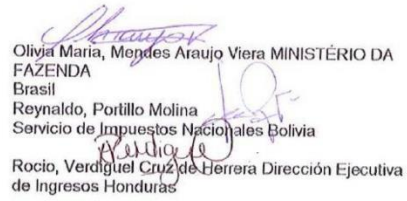 Olivia Maria, Mendes Araujo Viera MINISTÉRIO DA
FAZENDA
Brasil
Reynaldo, Portillo Molina
Servicio de Impuestos Nacionales Bolivia
Rocio, Verdiguel Cruz de Herrera Dirección Ejecutiva
de Ingresos Honduras